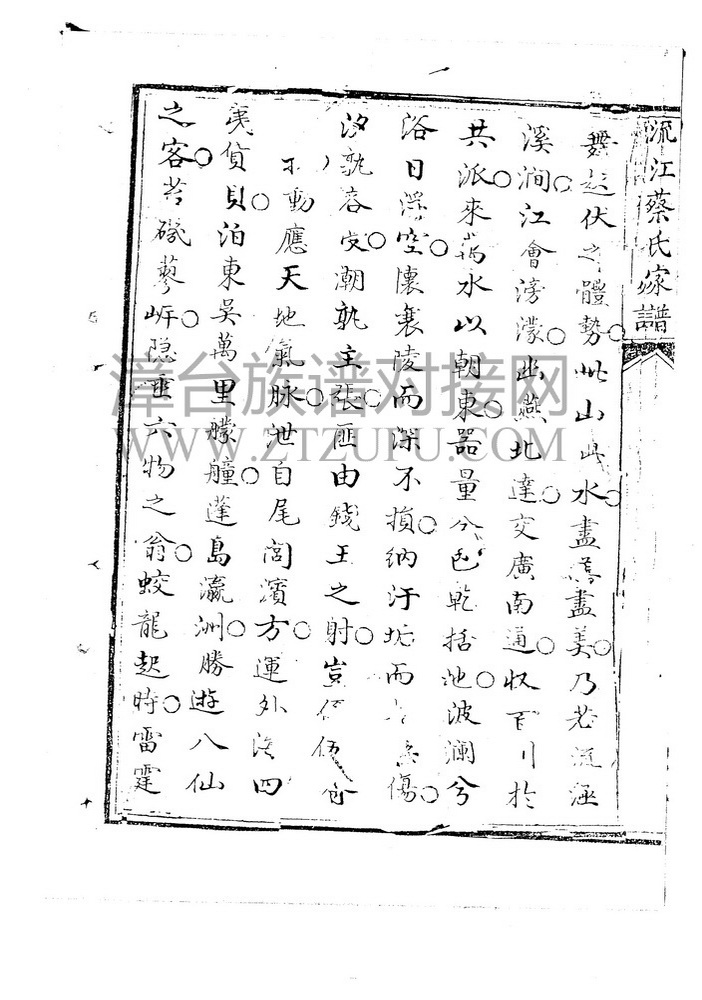 流江蔡氏家譜
舞起伏之體勢○此山此水○盡善盡美○乃若流
溪澗○江會滂濛○出燕北達○交廣南通○収百川於
共派○來萬水以朝東○器量兮包乾括池○波瀾兮
浴日浮空○懷襄陵而深不損○納汙垢而傷○
汐孰容受○潮孰主張○匪由錢王之射○豈伍
不動應天地氣脉○泄自尾閭濱方○運外海四
夷貨貝○泊東吳萬里艨艟○蓬島瀛洲○勝遊八仙
之客○苔磯蓼岍○隐垂六物之翁○蛟龍起時○雷霆
漳台族谱对接网
WWW.ZTZUPU.COM